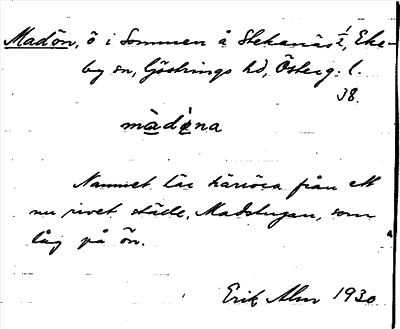 Madön, ö i Sommen å Stekanäs ½, Eke-
by sn, Göstrings hd, Österg. l.
38.
màdǿna
Namnet lär härröra från ett
nu rivet ställe, Madstugan, som
låg på ön.
Erik Alm 1930